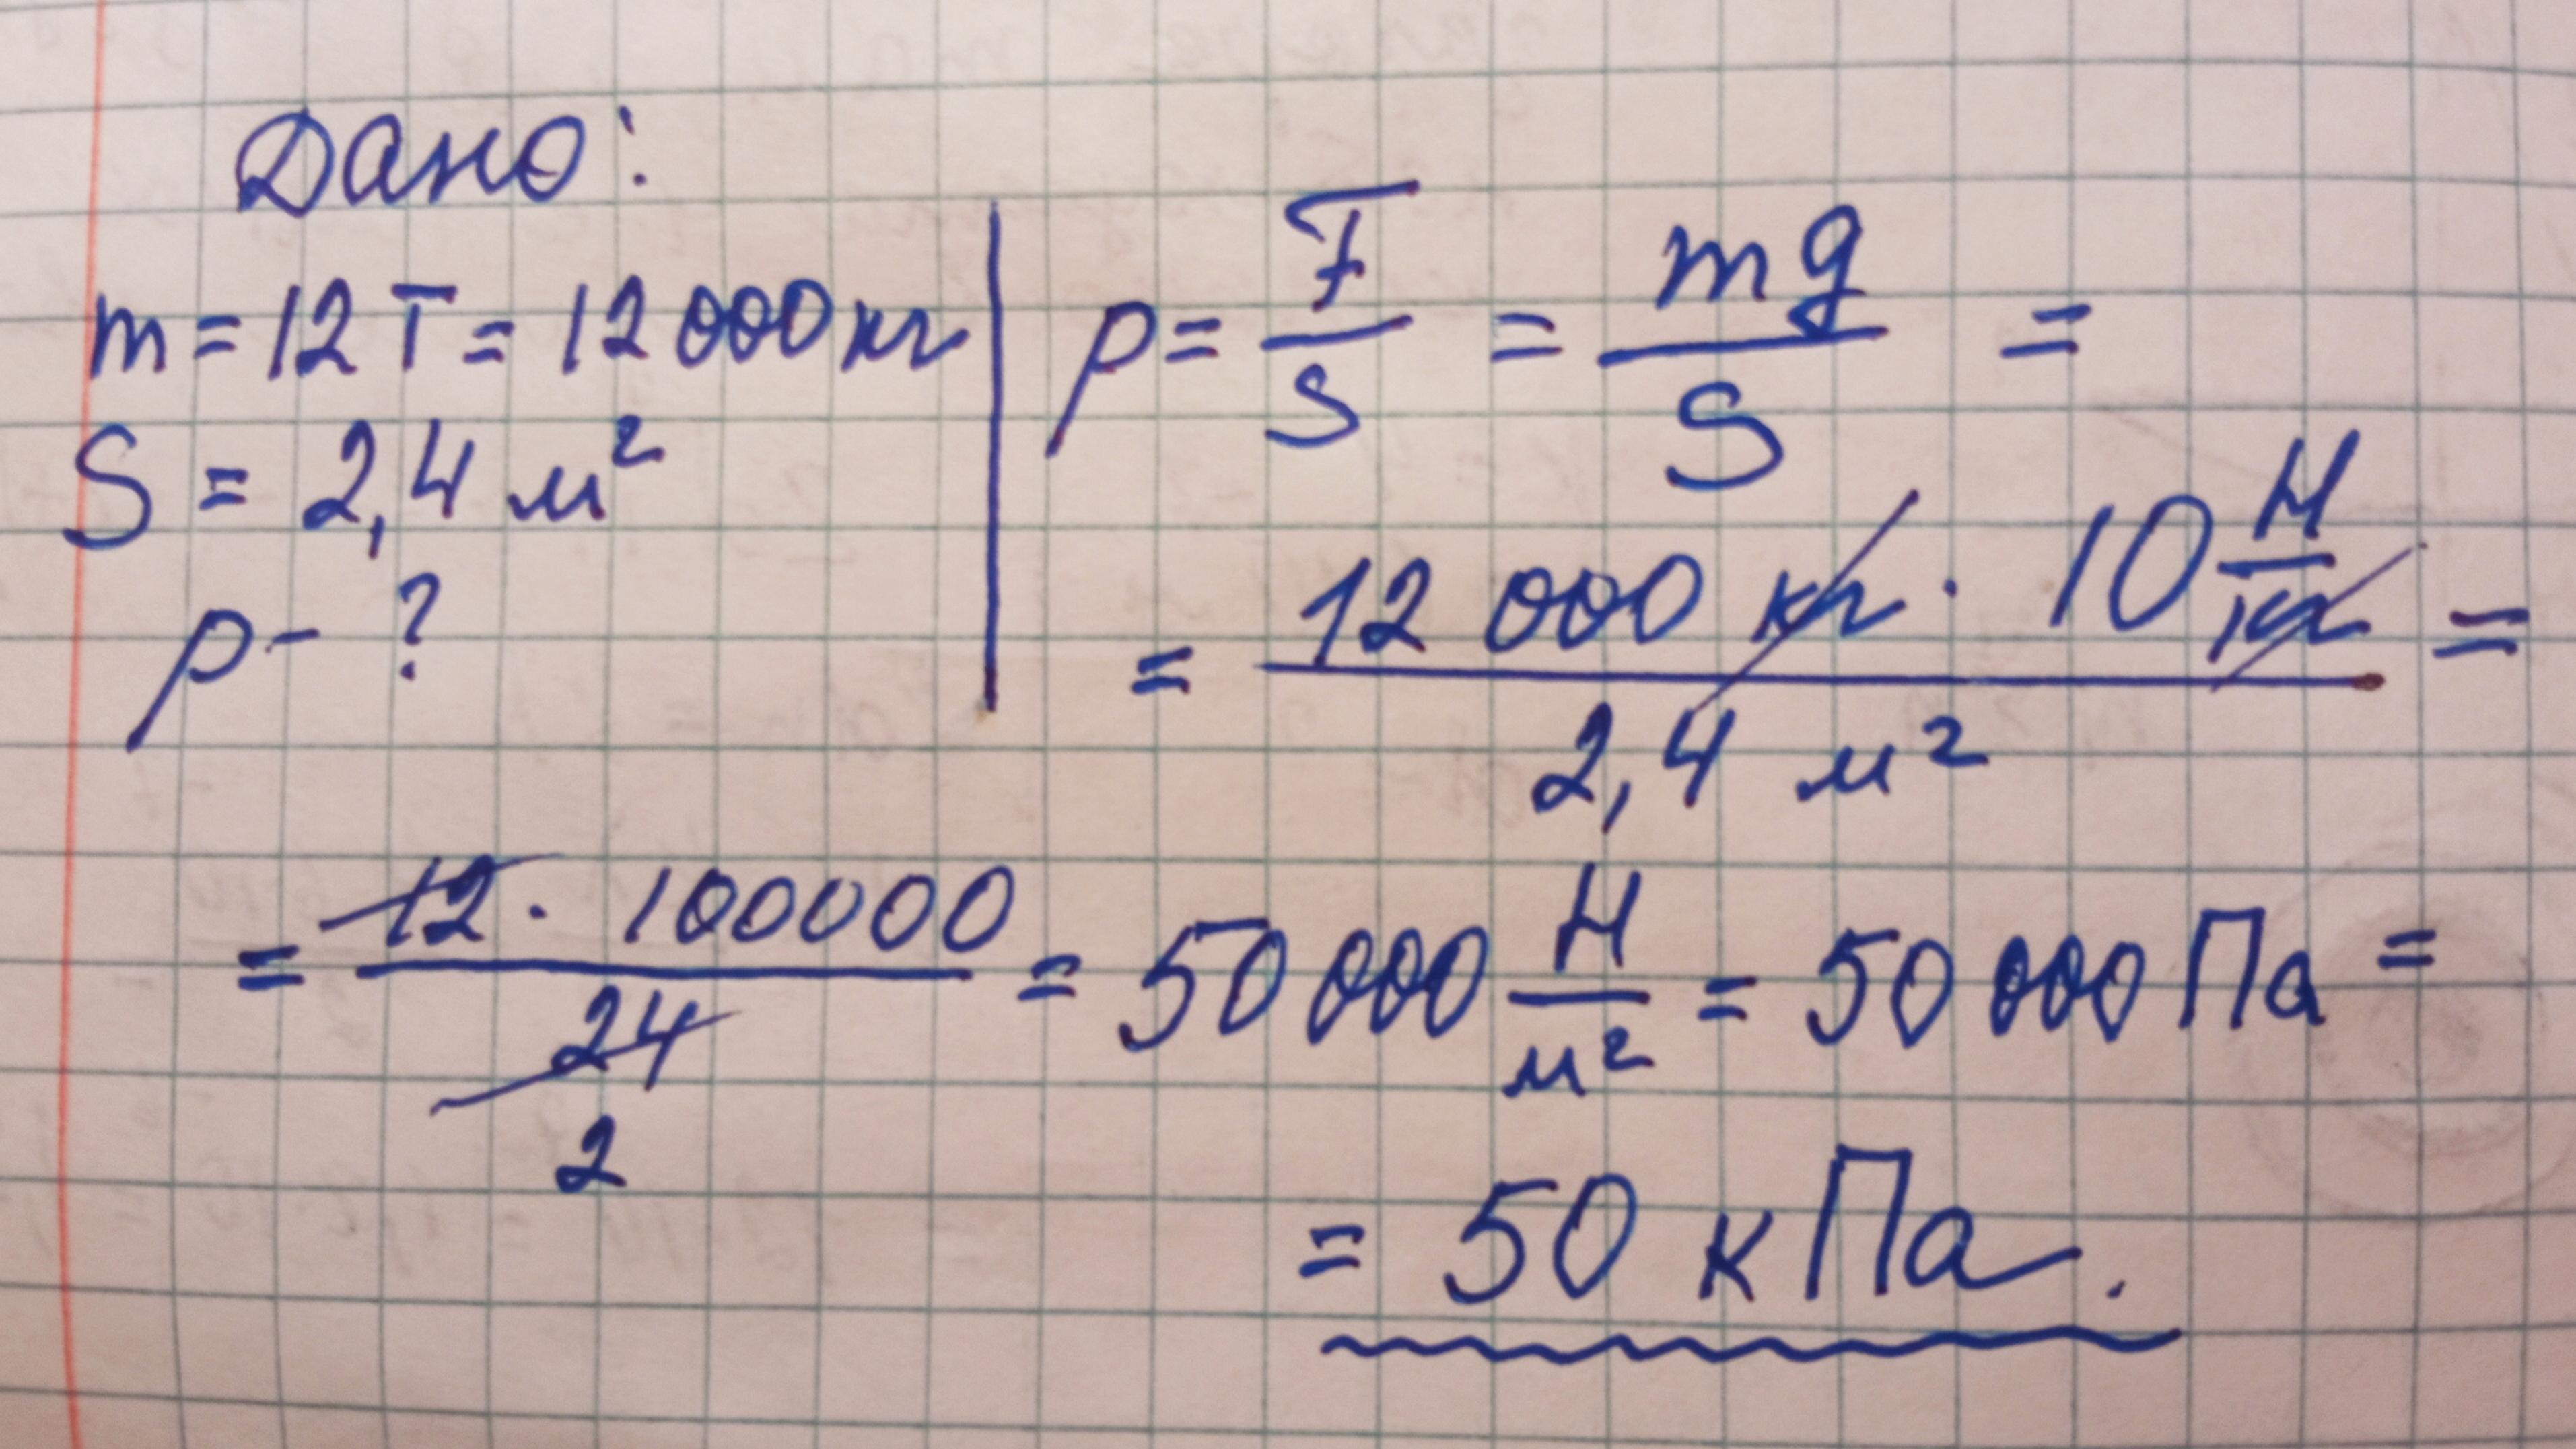 Дано:
m = 12 т = 12 000 кг
S = 2,4 м²
p - ?
p = F/S = mg/S =
= 12 000 кг · 10 Н/кг / 2,4 м² =
= 12 · 100000 / 24 = 50 000 Н/м² = 50 000 Па =
2
= 50 кПа.